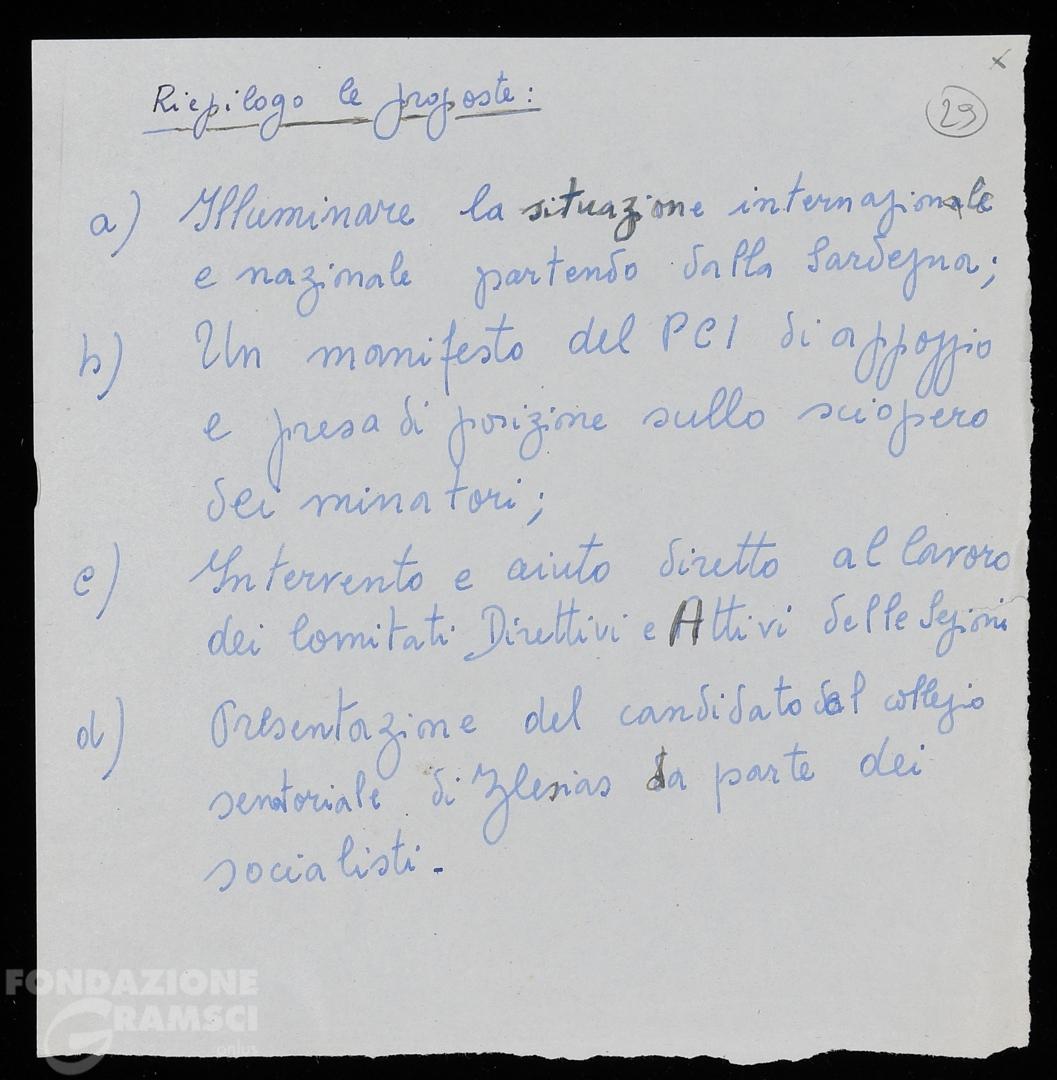 x
Riepilogo le proposte:
29
a) Illuminare la situazione internazionale
e nazionale partendo dalla Sardegna;
b) Un manifesto del PCI di appoggio
e presa di posizione sullo sciopero
dei minatori;
c) Intervento e aiuto diretto al lavoro
dei Comitati Direttivi e Attivi delle Sezioni
d) Presentazione del candidato del collegio
senatoriale di Iglesias da parte dei
socialisti.
FONDAZIONE
GRAMSCI
onlus